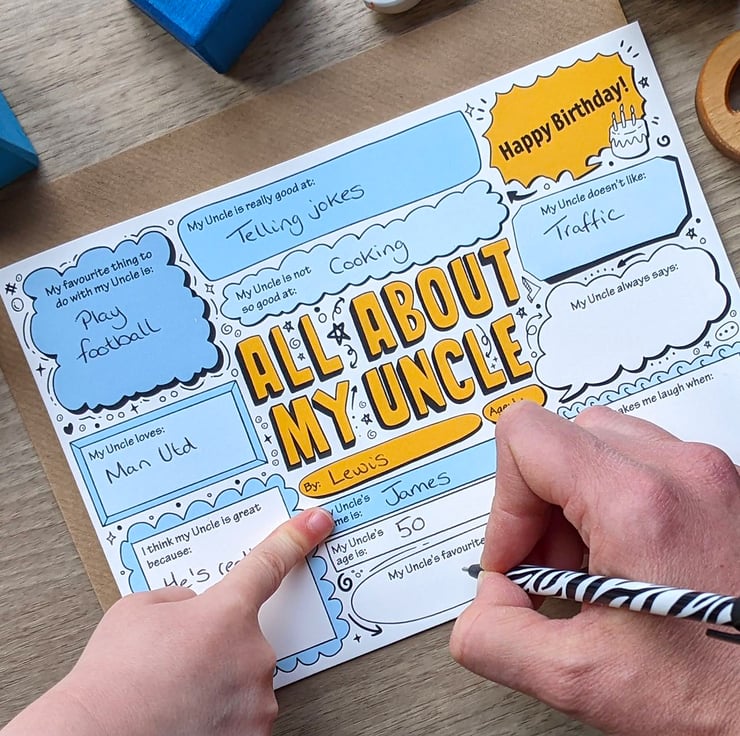 Happy Birthday!
My Uncle is really good at:
Telling jokes
My Uncle doesn't like:
Traffic
My favourite thing to
do with my Uncle is:
Play
football
My Uncle is not
so good at:
Cooking
My Uncle always says:
ALL ABOUT
MY UNCLE
My Uncle loves:
Man Utd
By: Lewis
makes me laugh when:
Uncle's
James
My Uncle's
age is:
50
I think my Uncle is great
because:
He's
My Uncle's favourite